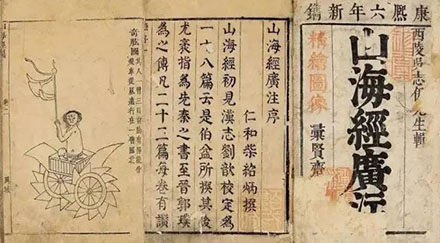 康熙六年新鐫
西陵吳志伊先生輯
山海經廣注
精繪圖像
彙賢齋
山海經廣注序
仁和柴紹炳撰
山海經初見漢志劉歆校定為
一十八篇云是伯益所撰其後
尤袤指為先秦之書至晉郭璞
為之傳凡二十二篇每卷有讚
奇肱國